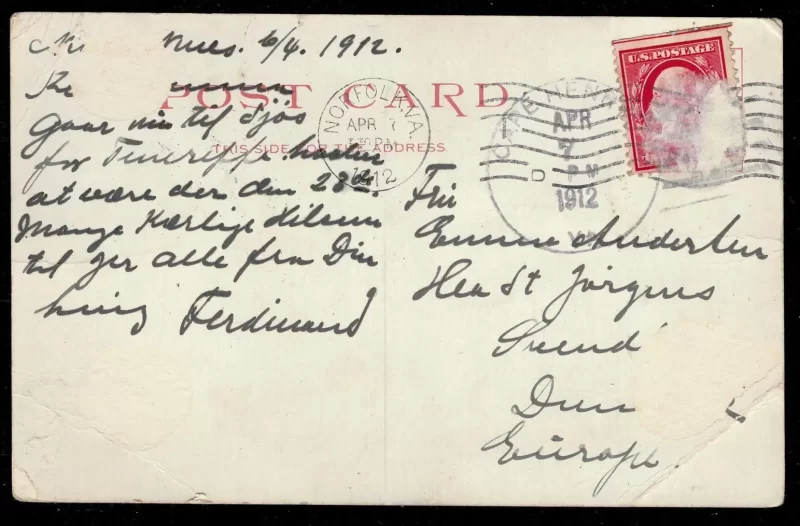 nues. 6/4. 1912.
POST CARD
THIS SIDE FOR THE ADDRESS
Gaar nu til Sjøs
for Teneriffe haaber
at være der den 28de.
Mange Kærlige Hilsener
til jer alle fra Din
Ferdinand
NORFOLK, VA.
APR 7
1912
CAPE HENRY
APR
7
D PM
1912
VA
U.S. POSTAGE
Emma Andersen
St Jørgens
Svend
Europe.